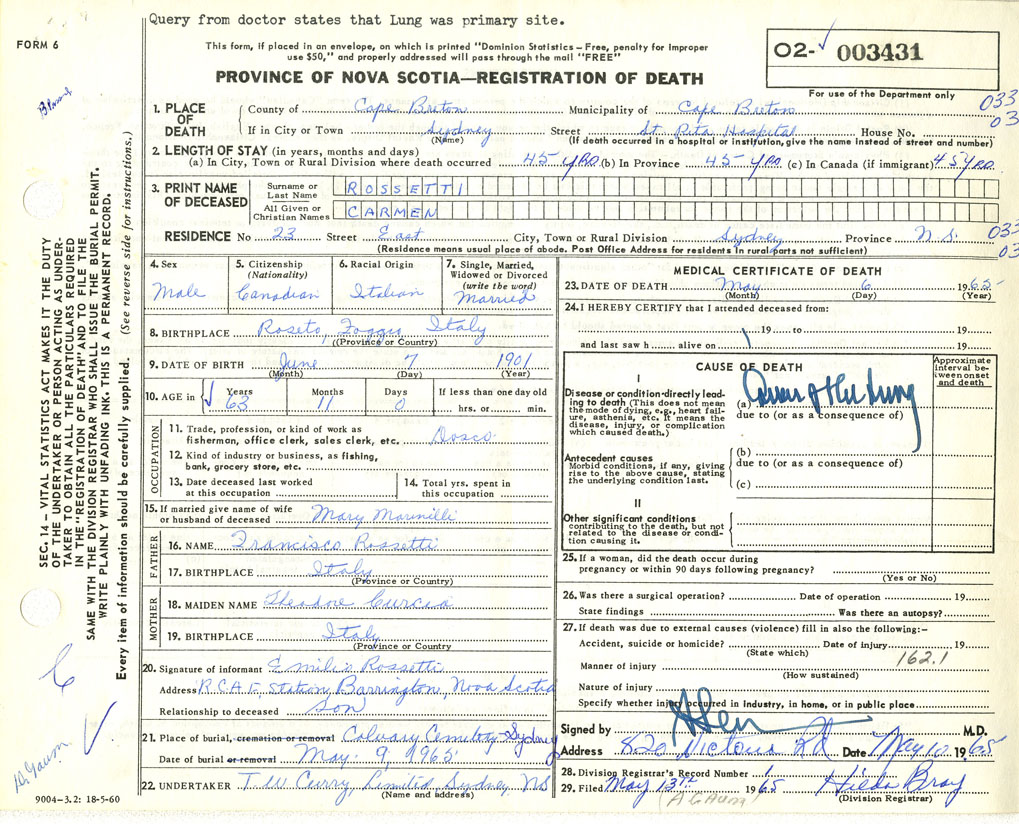 Query from doctor states that Lung was primary site.
FORM 6
This form, if placed in an envelope, on which is printed "Dominion Statistics – Free, penalty for improper
use $50," and properly addressed will pass through the mail "FREE"
O2- 003431
PROVINCE OF NOVA SCOTIA—REGISTRATION OF DEATH
For use of the Department only
1. PLACE OF DEATH
County of Cape Breton Municipality of Cape Breton 033
If in City or Town Sydney Street St. Rita Hospital House No. 03
(Name) (If death occurred in a hospital or institution, give the name instead of street and number)
2. LENGTH OF STAY (in years, months and days)
(a) In City, Town or Rural Division where death occurred 45 yrs. (b) In Province 45 yrs. (c) In Canada (if immigrant) 45 yrs.
3. PRINT NAME OF DECEASED
Surname or Last Name ROSSETTI
All Given or Christian Names CARMEN
RESIDENCE No 23 Street East City, Town or Rural Division Sydney Province N.S. 033
(Residence means usual place of abode. Post Office Address for residents in rural parts not sufficient) 03
4. Sex Male
5. Citizenship (Nationality) Canadian
6. Racial Origin Italian
7. Single, Married, Widowed or Divorced (write the word) Married
8. BIRTHPLACE Roseto, Foggu Italy
((Province or Country)
9. DATE OF BIRTH June 7 1901
(Month) (Day) (Year)
10. AGE in Years Months Days If less than one day old
63 11 0 hrs. or min.
OCCUPATION
11. Trade, profession, or kind of work as
fisherman, office clerk, sales clerk, etc. Dosco
12. Kind of industry or business, as fishing,
bank, grocery store, etc.
13. Date deceased last worked
at this occupation
14. Total yrs. spent in
this occupation
15. If married give name of wife
or husband of deceased Mary Marinelli
FATHER
16. NAME Francisco Rossetti
17. BIRTHPLACE Italy
(Province or Country)
MOTHER
18. MAIDEN NAME Theodore Curcia
19. BIRTHPLACE Italy
(Province or Country)
20. Signature of informant Emilio Rossetti
Address R.C.A.F. Station, Barrington, Nova Scotia
Relationship to deceased Son
21. Place of burial, cremation or removal Calvary Cemetery - Sydney
Date of burial or removal May 9, 1965
22. UNDERTAKER T W Curry Limited Sydney NS
(Name and address)
9004–3.2: 18-5-60
MEDICAL CERTIFICATE OF DEATH
23. DATE OF DEATH May 6 1965
(Month) (Day) (Year)
24. I HEREBY CERTIFY that I attended deceased from:
19 to 19
and last saw h alive on 19
CAUSE OF DEATH
Approximate interval between onset and death
I
Disease or condition directly leading to death (This does not mean the mode of dying, e.g., heart failure, asthenia, etc. It means the disease, injury, or complication which caused death.)
(a) Cancer of the Lung
due to (or as a consequence of)
Antecedent causes
Morbid conditions, if any, giving rise to the above cause, stating the underlying condition last.
(b)
due to (or as a consequence of)
(c)
II
Other significant conditions
contributing to the death, but not related to the disease or condition causing it.
25. If a woman, did the death occur during
pregnancy or within 90 days following pregnancy?
(Yes or No)
26. Was there a surgical operation? Date of operation 19
State findings Was there an autopsy?
27. If death was due to external causes (violence) fill in also the following:–
Accident, suicide or homicide? Date of injury 19
(State which) 162.1
Manner of injury
(How sustained)
Nature of injury
Specify whether injury occurred in industry, in home, or in public place
Signed by M.D.
Address 820 Victoria Rd Date May 10 1965
28. Division Registrar's Record Number 1
29. Filed May 13th 1965 Hilda Bray
(Division Registrar)
SEC. 14 — VITAL STATISTICS ACT MAKES IT THE DUTY
OF THE UNDERTAKER OR PERSON ACTING AS UNDER-
TAKER TO OBTAIN ALL THE PARTICULARS REQUIRED
IN THE "REGISTRATION OF DEATH" AND TO FILE THE
SAME WITH THE DIVISION REGISTRAR WHO SHALL ISSUE THE BURIAL PERMIT.
WRITE PLAINLY WITH UNFADING INK. THIS IS A PERMANENT RECORD.
Every item of information should be carefully supplied. (See reverse side for instructions.)